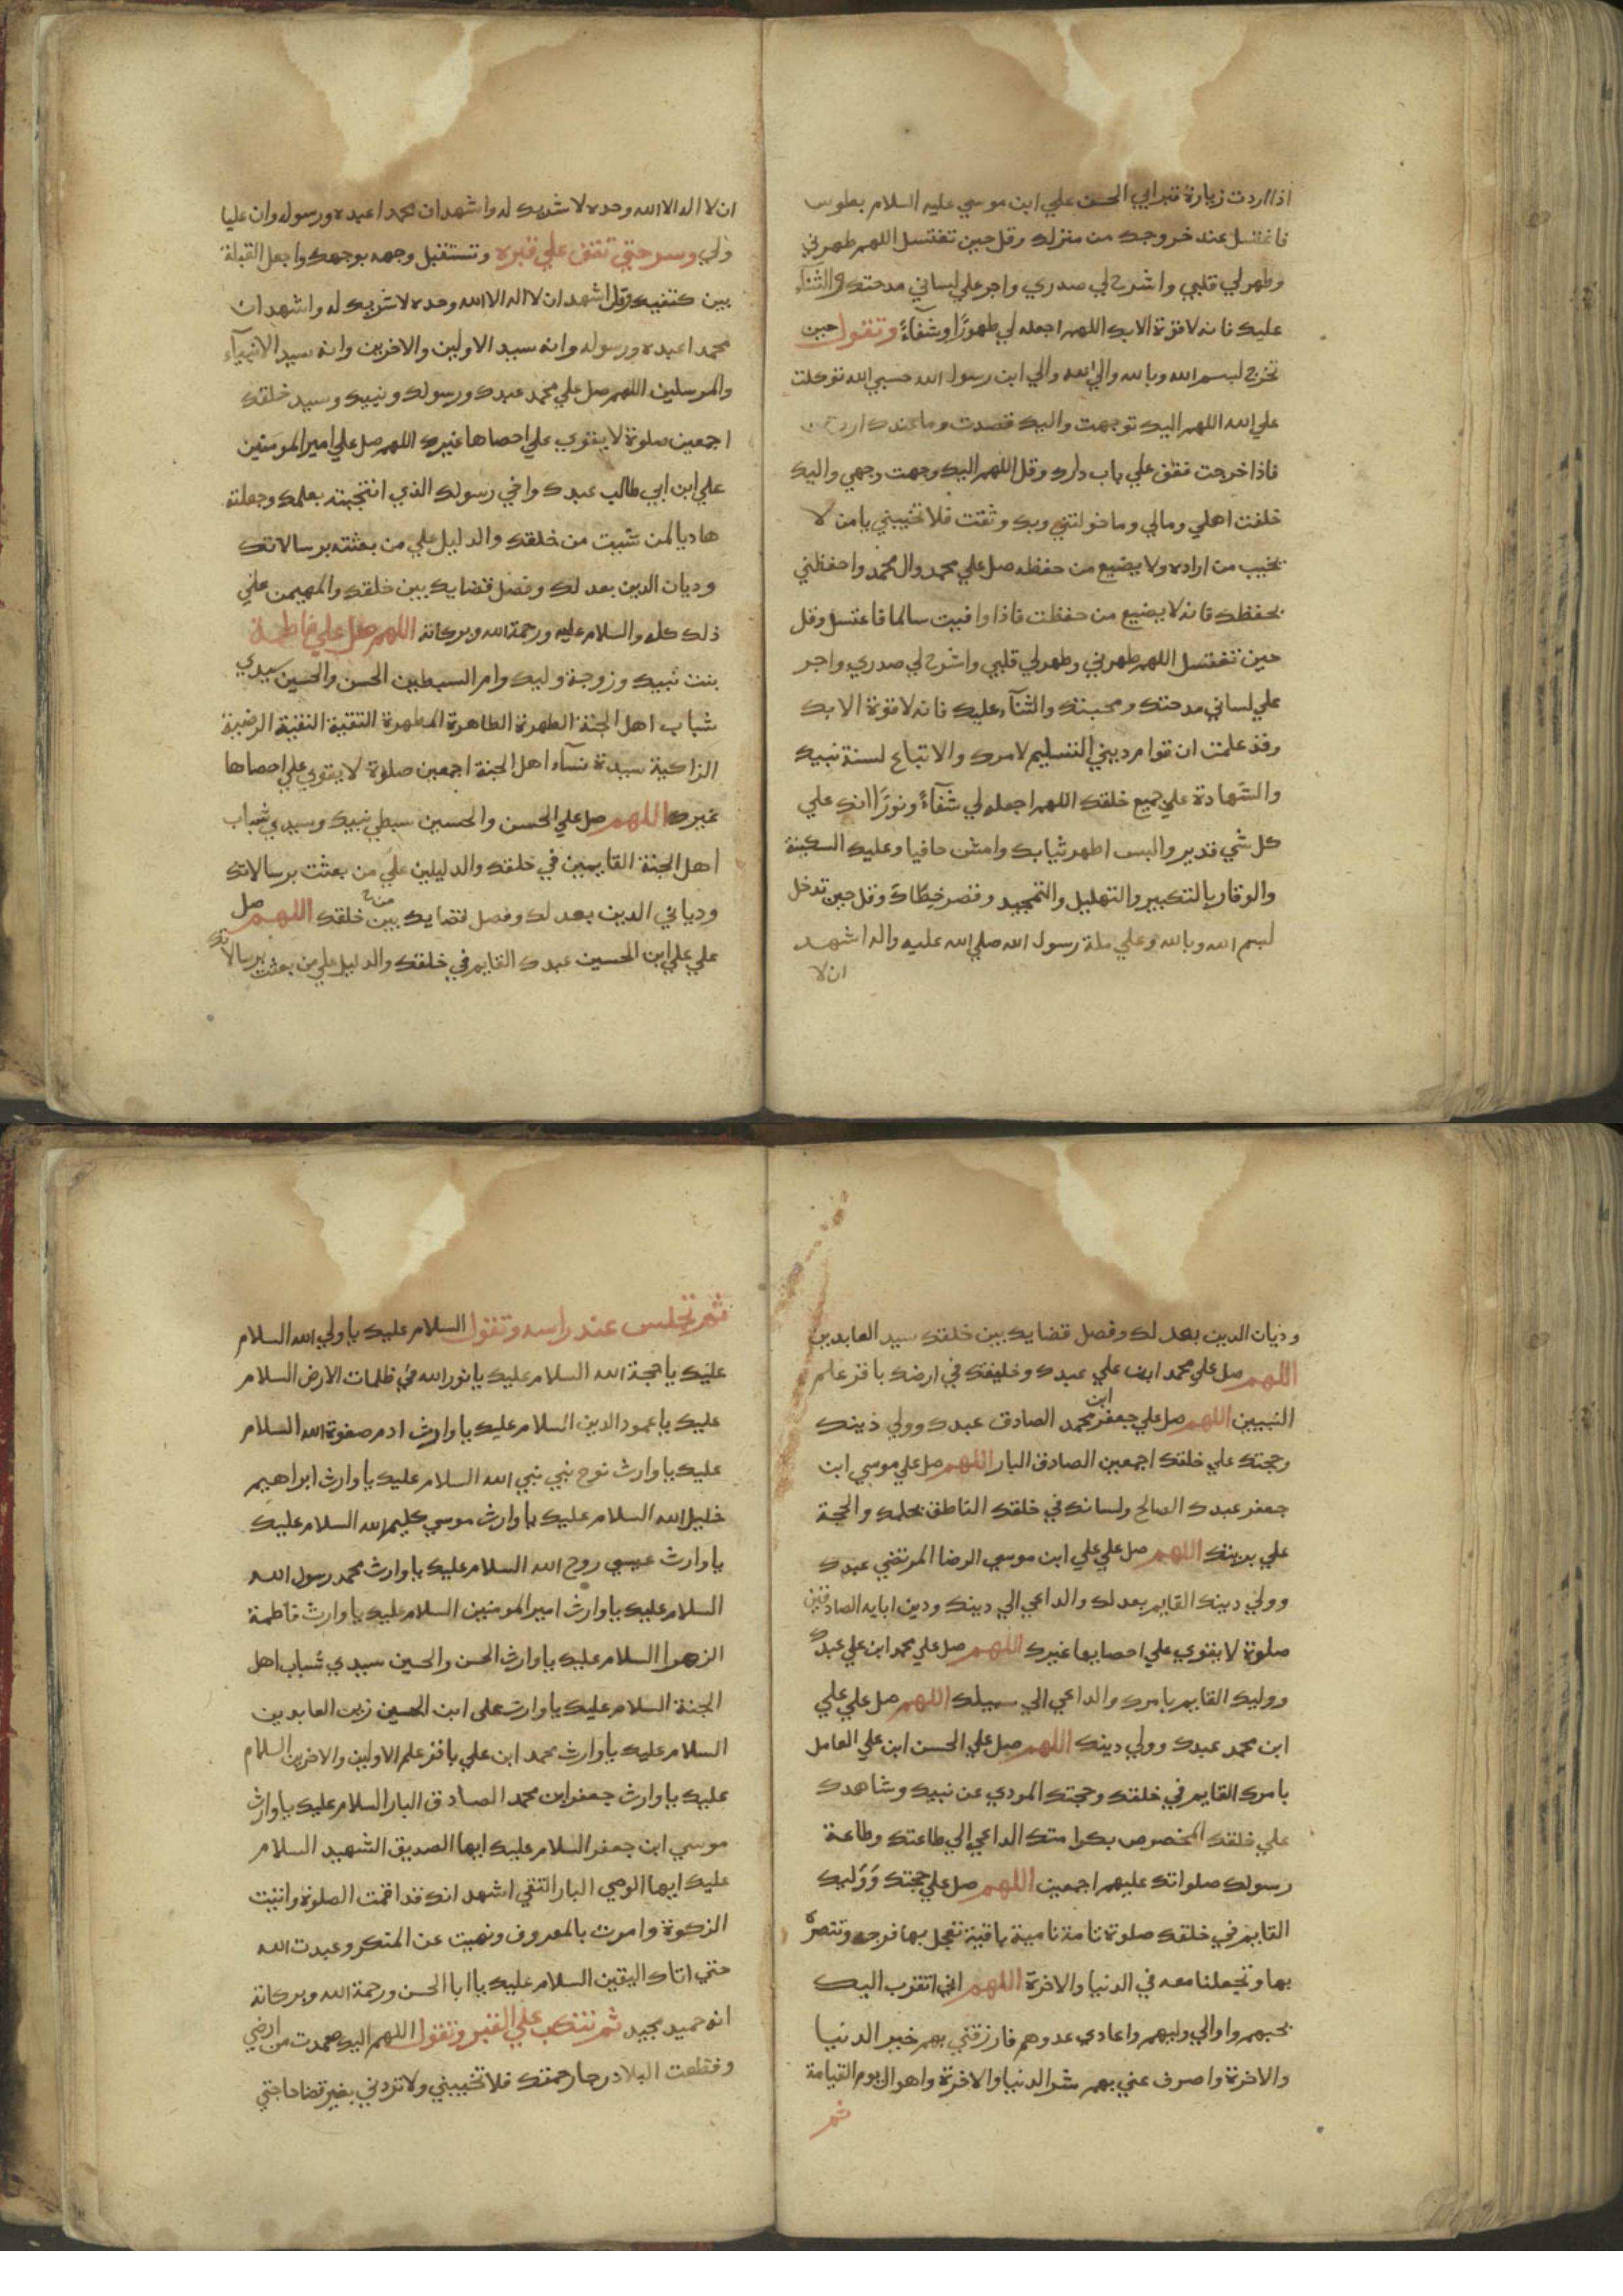 اذا اردت زيارة قبر ابي الحسن علي ابن موسي عليه السلام بطوس
فاغتسل عند خروجك من منزلك وقل حين تغتسل اللهم طهرني
وطهر لي قلبي واشرح لي صدري واجر علي لساني مدحتك والثنآء
عليك فانه لا قوة الا بك اللهم اجعله لي طهورًا وشفآءً وتقول حين
تخرج لبسم الله وبالله والي الله والي ابن رسول الله حسبي الله توكلت
علي الله اللهم اليك توجهت واليك قصدت وما عندك اردت
فاذا خرجت فقف علي باب دارك وقل اللهم اليك وجهت وجهي واليك
خلفت اهلي ومالي وما خولتني وبك وثقت فلا تخيبني يا من لا
يخيب من اراده ولا يضيع من حفظه صل علي محمد وال محمد واحفظني
بحفظك فانه لا يضيع من حفظت فاذا وافيت سالما فاغتسل وقل
حين تغتسل اللهم طهرني وطهر لي قلبي واشرح لي صدري واجر
علي لساني مدحتك ومحبتك والثنآء عليك فانه لا قوة الا بك
وقد علمت ان قوام ديني التسليم لامرك والاتباع لسنة نبيك
والشهادة علي جميع خلقك اللهم اجعله لي شفآءً ونورًا انك علي
كل شي قدير والبس اطهر ثيابك وامش حافيا وعليك السكينة
والوقار بالتكبير والتهليل والتمجيد وقصر خطاك وقل حين تدخل
لبسم الله وبالله وعلي ملة رسول الله صلي الله عليه واله اشهد
ان لا
ان لا اله الا الله وحده لا شريك له واشهد ان محمدا عبده ورسوله وان عليا
ولي وسر حتي تقف علي قبره وتستقبل وجهه بوجهك واجعل القبلة
بين كتفيك وقل اشهد ان لا اله الا الله وحده لا شريك له واشهد ان
محمدا عبده ورسوله وانه سيد الاولين والاخرين وانه سيد الانبيآء
والمرسلين اللهم صل علي محمد عبدك ورسولك ونبيك وسيد خلقك
اجمعين صلوة لا يقوي علي احصاها غيرك اللهم صل علي امير المومنين
علي ابن ابي طالب عبدك واخي رسولك الذي انتجبته بعلمك وجعلته
هاديا لمن شيت من خلقك والدليل علي من بعثته برسالاتك
وديان الدين بعدلك وفصل قضايك بين خلقك والمهيمن علي
ذلك كله والسلام عليه ورحمة الله وبركاته اللهم صل علي فاطمة
بنت نبيك وزوجة وليك وام السبطين الحسن والحسين سيدي
شباب اهل الجنة الطهرة الطاهرة المطهرة التقية النقية الرضية
الزاكية سيدة نسآء اهل الجنة اجمعين صلوة لا يقوي علي احصاها
غيرك اللهم صل علي الحسن والحسين سبطي نبيك وسيدي شباب
اهل الجنة القايمين في خلقك والدليلين علي من بعثت برسالاتك
ودياني الدين بعدلك وفصل قضايك بين خلقك اللهم صل
علي علي ابن الحسين عبدك القايم في خلقك والدليل علي من بعثت برسالاتك
وديان الدين بعدلك وفصل قضايك بين خلقك سيد العابدين
اللهم صل علي محمد ابن علي عبدك وخليفتك في ارضك باقر علم
النبيين اللهم صل علي جعفر ابن محمد الصادق عبدك وولي دينك
وحجتك علي خلقك اجمعين الصادق البار اللهم صل علي موسي ابن
جعفر عبدك الصالح ولسانك في خلقك الناطق بحلمك والحجة
علي بريتك اللهم صل علي علي ابن موسي الرضا المرتضي عبدك
وولي دينك القايم بعدلك والداعي الي دينك ودين ابايه الصادقين
صلوة لا يقوي علي احصايها غيرك اللهم صل علي محمد ابن علي عبدك
ووليك القايم بامرك والداعي الي سبيلك اللهم صل علي علي
ابن محمد عبدك وولي دينك اللهم صل علي الحسن ابن علي العامل
بامرك القايم في خلقك وحجتك المودي عن نبيك وشاهدك
علي خلقك المخصوص بكرامتك الداعي الي طاعتك وطاعة
رسولك صلواتك عليهم اجمعين اللهم صل علي حجتك وَوَليك
القايم في خلقك صلوة تامة نامية باقية تعجل بها فرجه وتنصره
بها وتجعلنا معه في الدنيا والاخرة اللهم اني اتقرب اليك
بحبهم واوالي وليهم واعادي عدوهم فارزقني بهم خير الدنيا
والاخرة واصرف عني بهم شر الدنيا والاخرة واهوال يوم القيامة
ثم
ثم تجلس عند راسه وتقول السلام عليك يا ولي الله السلام
عليك يا حجة الله السلام عليك يا نور الله في ظلمات الارض السلام
عليك يا عمود الدين السلام عليك يا وارث ادم صفوة الله السلام
عليك يا وارث نوح نبي نبي الله السلام عليك يا وارث ابراهيم
خليل الله السلام عليك يا وارث موسي كليم الله السلام عليك
يا وارث عيسي روح الله السلام عليك يا وارث محمد رسول الله
السلام عليك يا وارث امير المومنين السلام عليك يا وارث فاطمة
الزهرا السلام عليك يا وارث الحسن والحسين سيدي شباب اهل
الجنة السلام عليك يا وارث على ابن الحسين زين العابدين
السلام عليك يا وارث محمد ابن علي باقر علم الاولين والاخرين السلام
عليك يا وارث جعفر ابن محمد الصادق البار السلام عليك يا وارث
موسي ابن جعفر السلام عليك ايها الصديق الشهيد السلام
عليك ايها الوصي البار التقي اشهد انك قد اقمت الصلوة واتيت
الزكوة وامرت بالمعروف ونهيت عن المنكر وعبدت الله
حتي اتاك اليقين السلام عليك يا ابا الحسن ورحمة الله وبركاته
انه حميد مجيد ثم تنكب علي القبر وتقول اللهم اليك صمدت من ارضي
وقطعت البلاد رجا رحمتك فلا تخيبني ولا تردني بغير قضا حاجتي